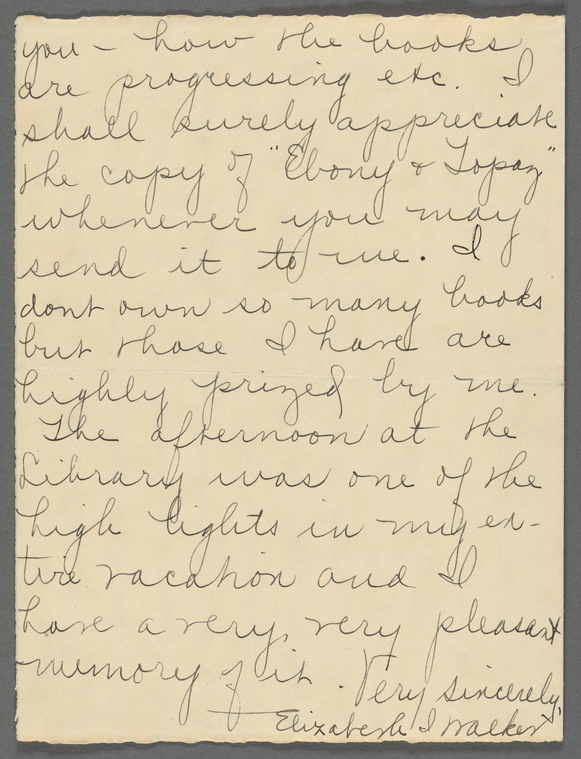 you – how the books
are progressing etc. I
shall surely appreciate
the copy of "Ebony & Topaz"
whenever you may
send it to me. I
dont own so many books
but those I have are
highly prized by me.
The afternoon at the
Library was one of the
high lights in my en-
tire vacation and I
have a very, very pleasant
memory of it. Very sincerely,
Elizabeth I Walker